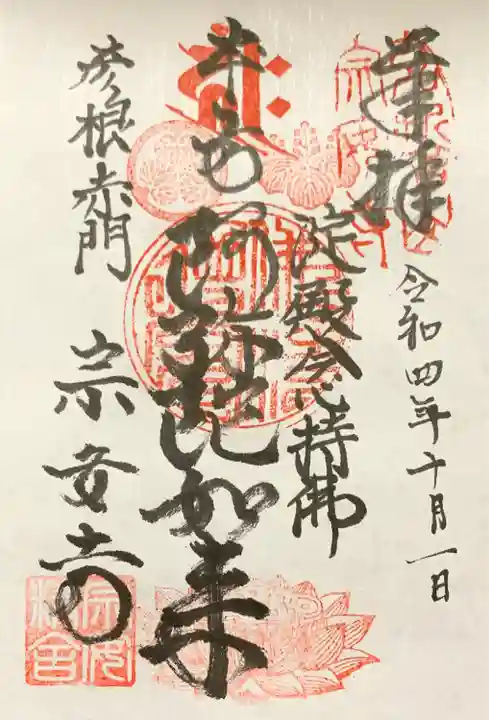 奉拝
令和四年十月一日
淀殿念持佛
本尊 阿弥陀如来
彦根赤門 宗安寺